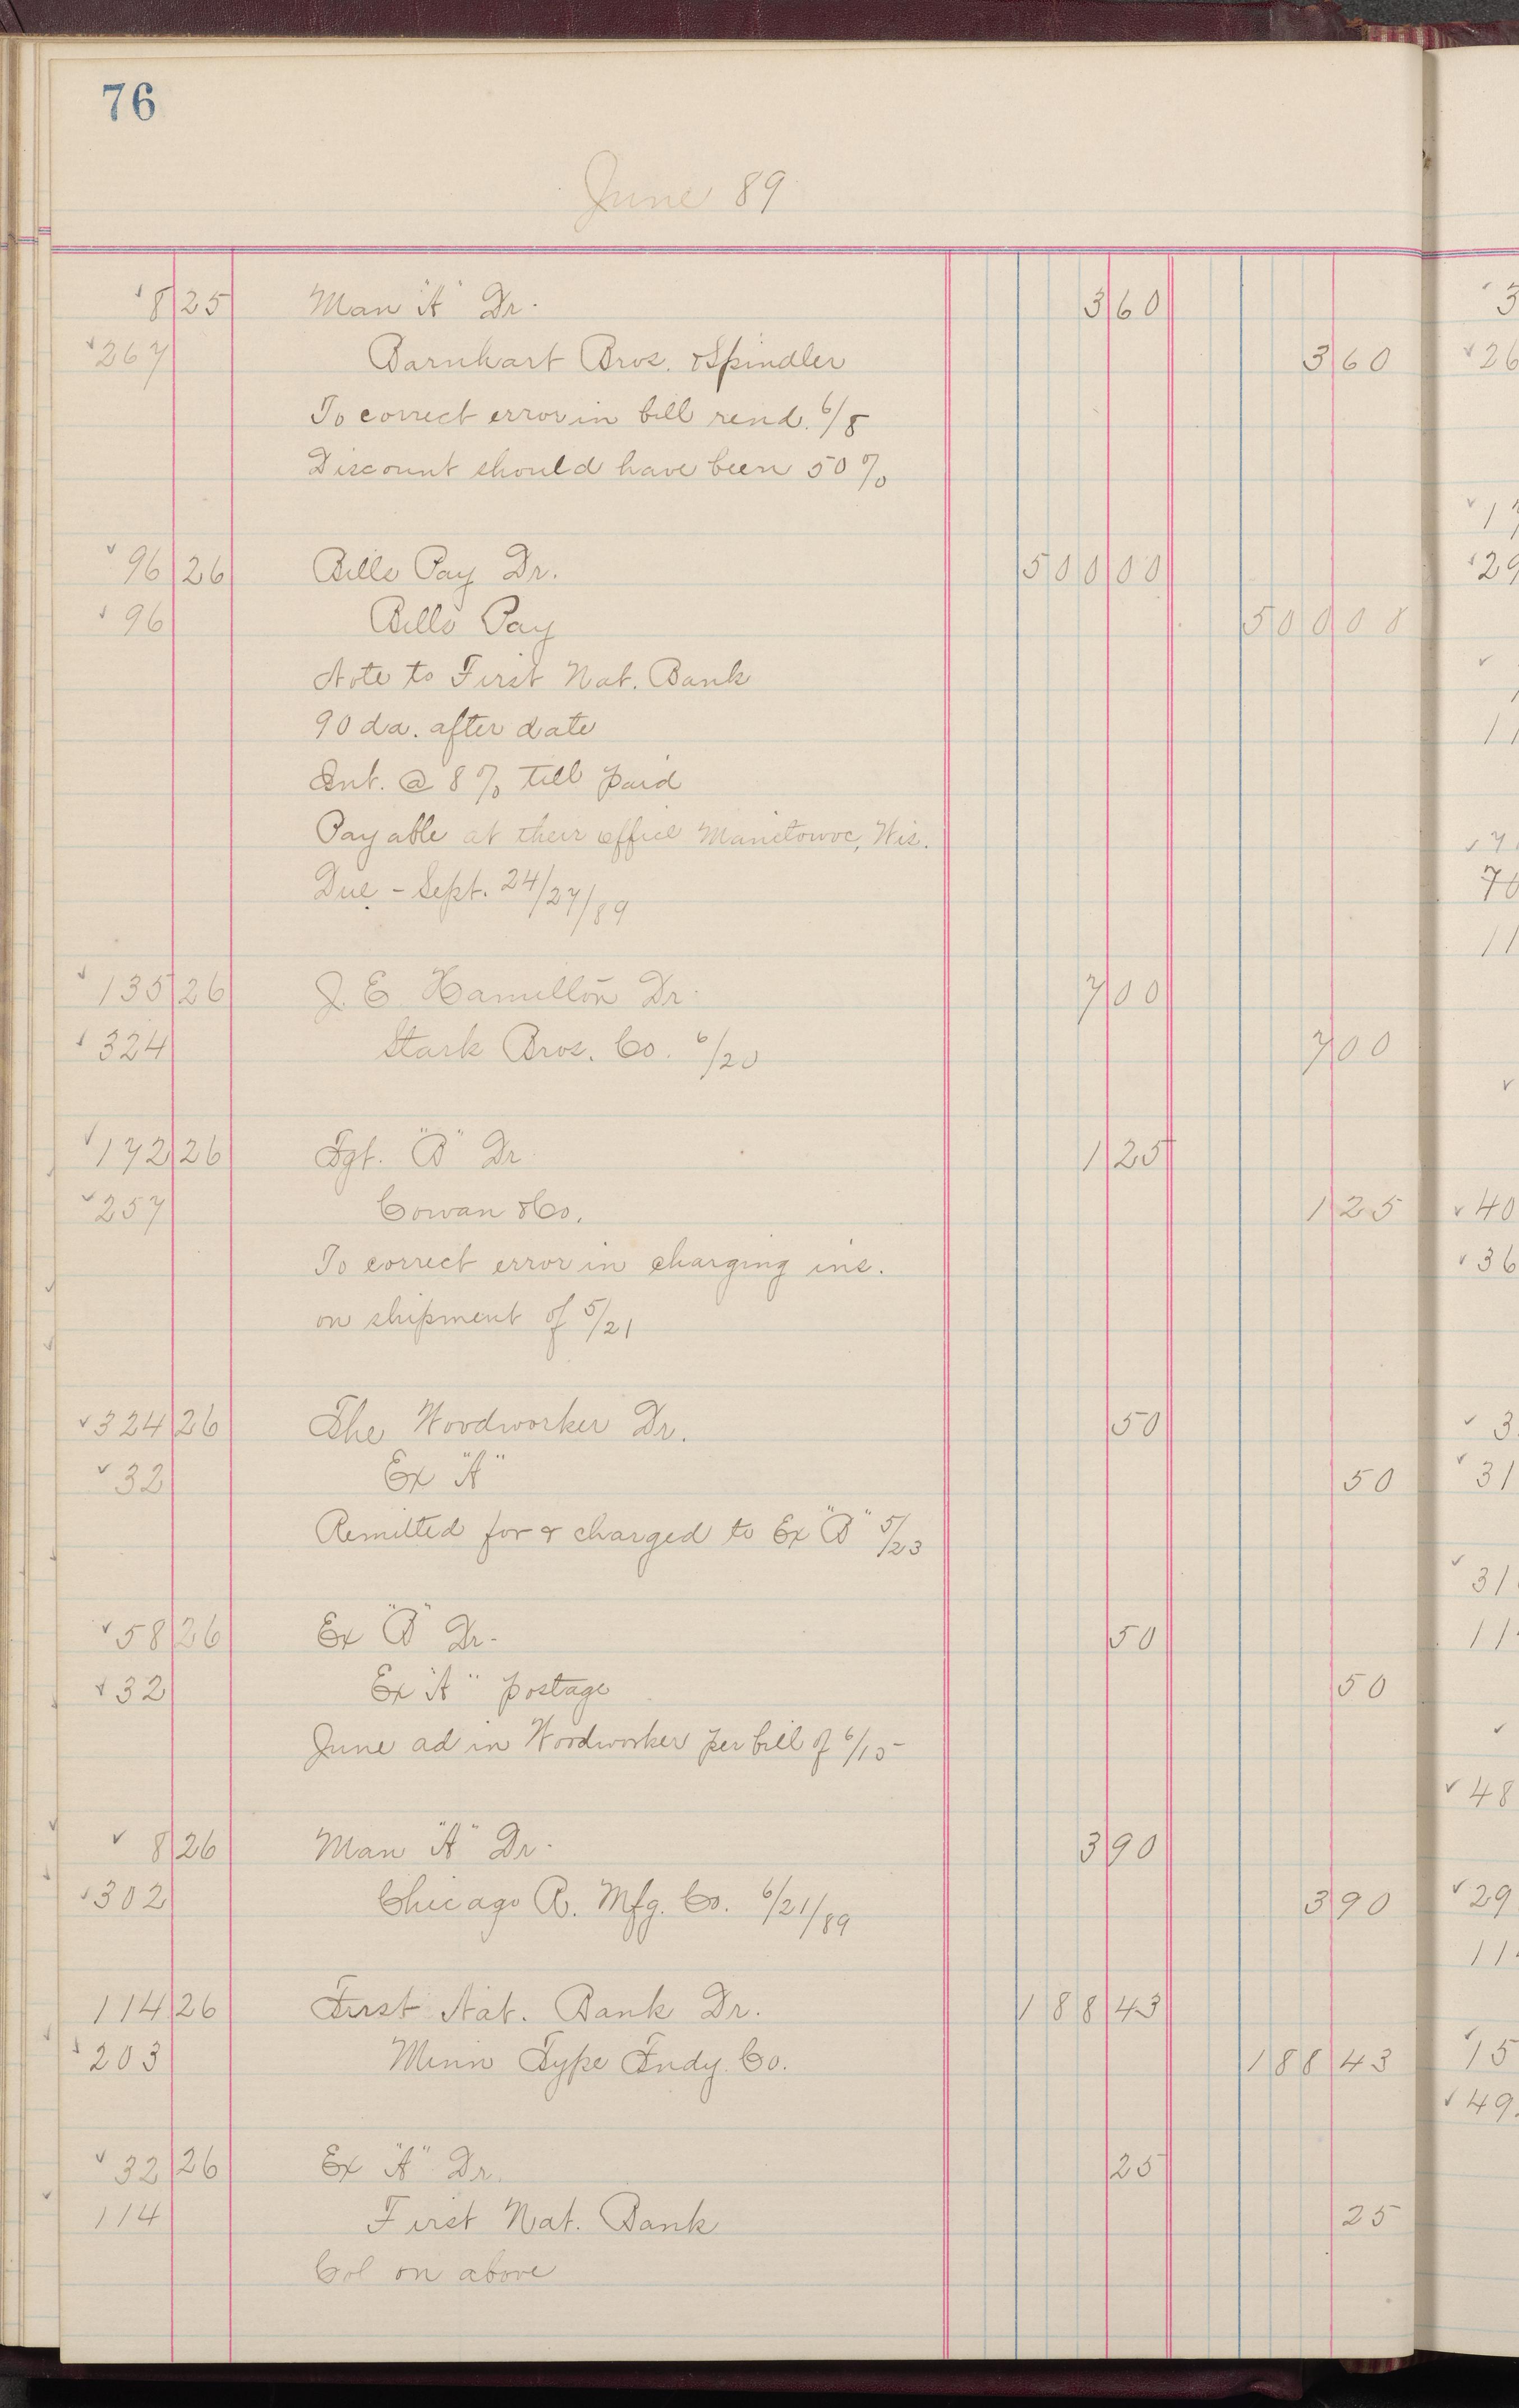 76
June 89
8 25 Man "A" Dr. 3 60
267 Barnhart Bros. & Spindler 3 60
To correct error in bill rend. 6/8
Discount should have been 50%
96 26 Bills Pay Dr. 500 00
96 Bills Pay 500 00
Note to First Nat. Bank
90 da. after date
Int. @ 8% till paid
Payable at their office Manitowoc, Wis.
Due - Sept. 24/27/89
135 26 J. E. Hamilton Dr. 7 00
324 Stark Bros. Co. 6/20 7 00
172 26 Fgt. "B" Dr 1 25
257 Cowan & Co. 1 25
To correct error in charging ins.
on shipment of 5/21
324 26 The Woodworker Dr. 50
32 Ex "A" 50
Remitted for & charged to Ex "B" 5/23
58 26 Ex "B" Dr. 50
32 Ex "A" postage 50
June ad in Woodworker per bill of 6/15
8 26 Man "A" Dr. 3 90
302 Chicago R. Mfg. Co. 6/21/89 3 90
114 26 First Nat. Bank Dr. 188 43
203 Minn Type Fndy. Co. 188 43
32 26 Ex "A" Dr. 25
114 First Nat. Bank 25
Col on above